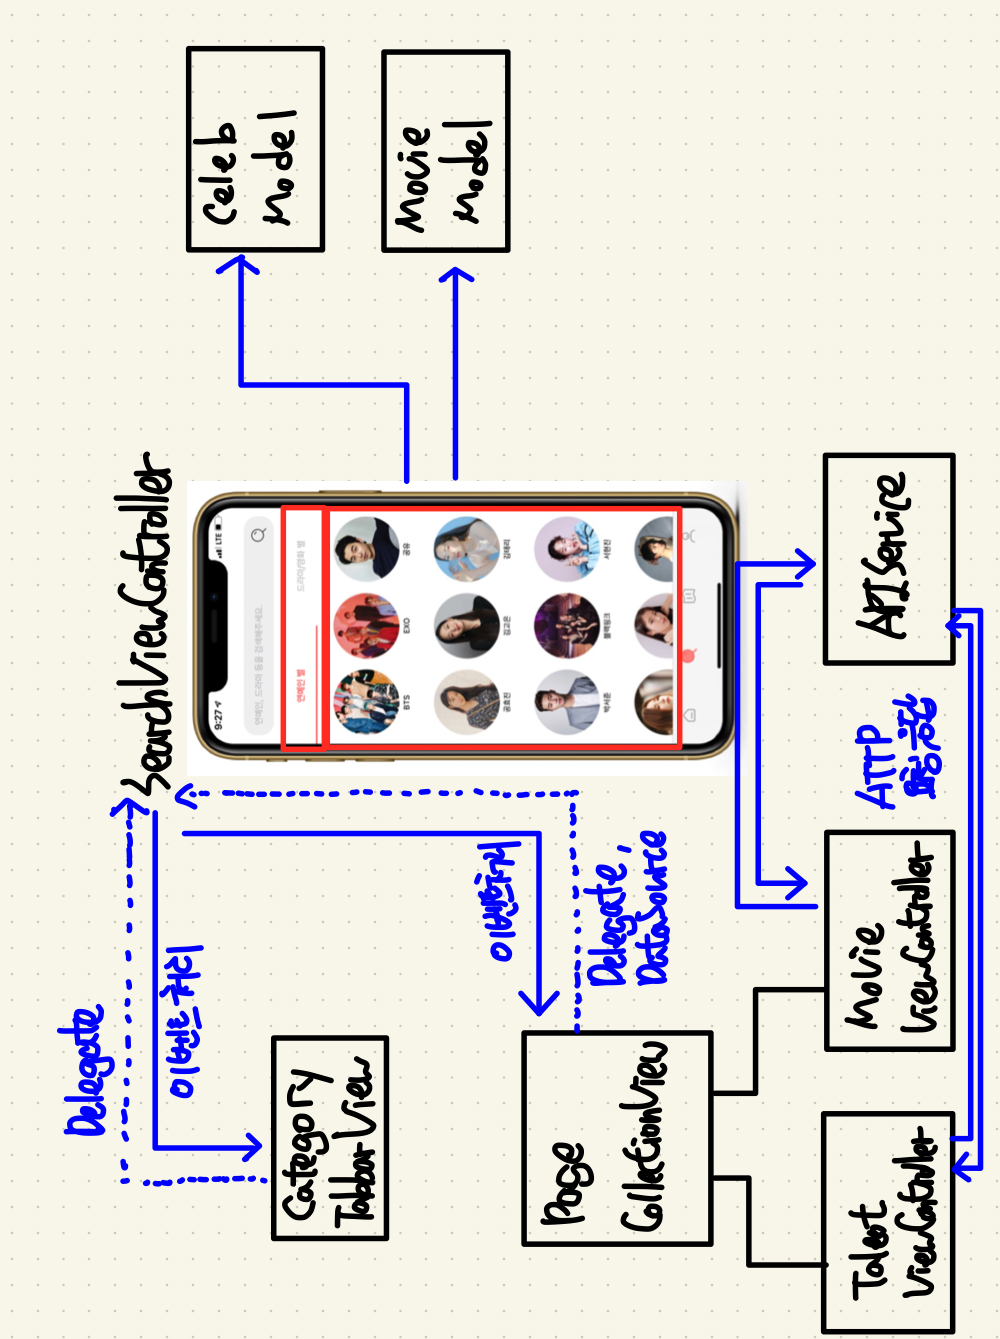 Delegate
SearchViewController
이벤트 처리
9:27
LTE
연예인, 드라마 등을 검색해주세요.
연예인 별
드라마/영화 별
Category
TabbarView
BTS
EXO
공유
공효진
김고은
김태리
박서준
블랙핑크
서현진
Celeb
Model
Movie
Model
이벤트처리
Page
CollectionView
Delegate,
DataSource
Talent
ViewController
Movie
ViewController
HTTP
요청, 응답
APIService